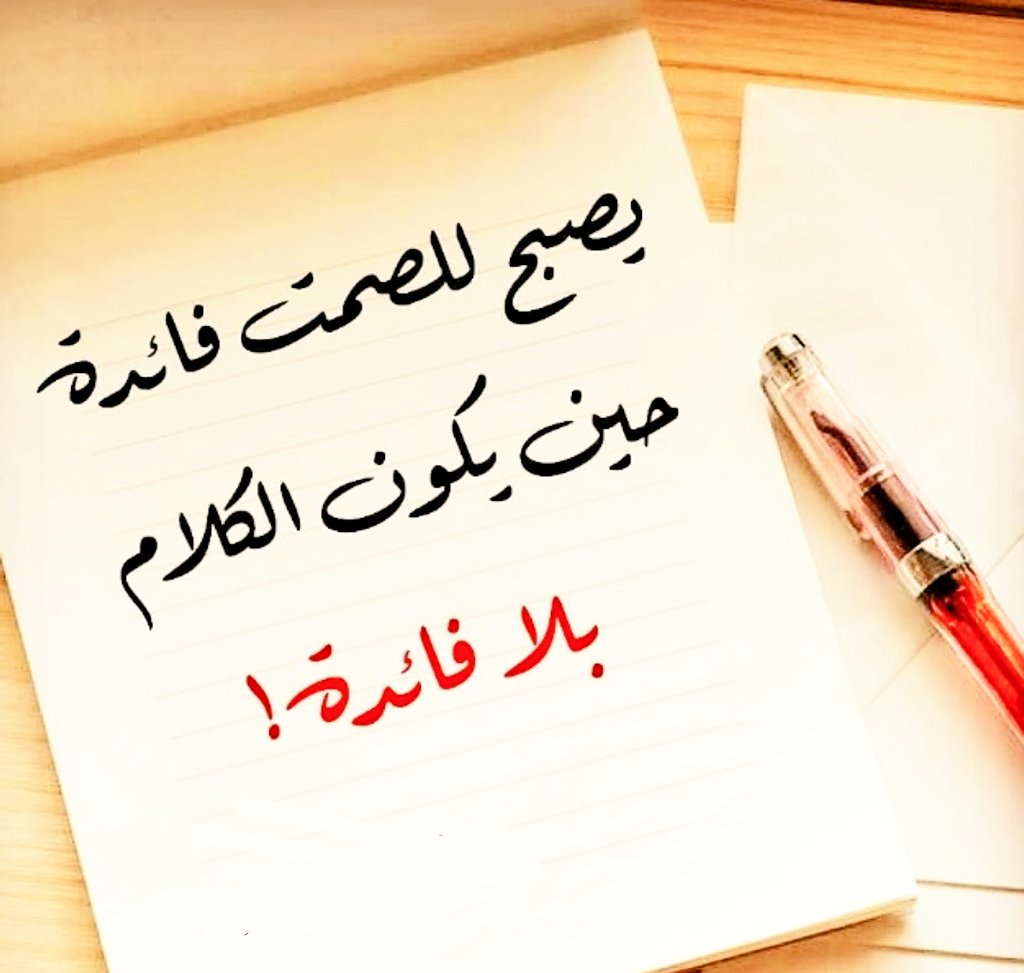 يصبح للصمت فائدة
حين يكون الكلام
بلا فائدة !